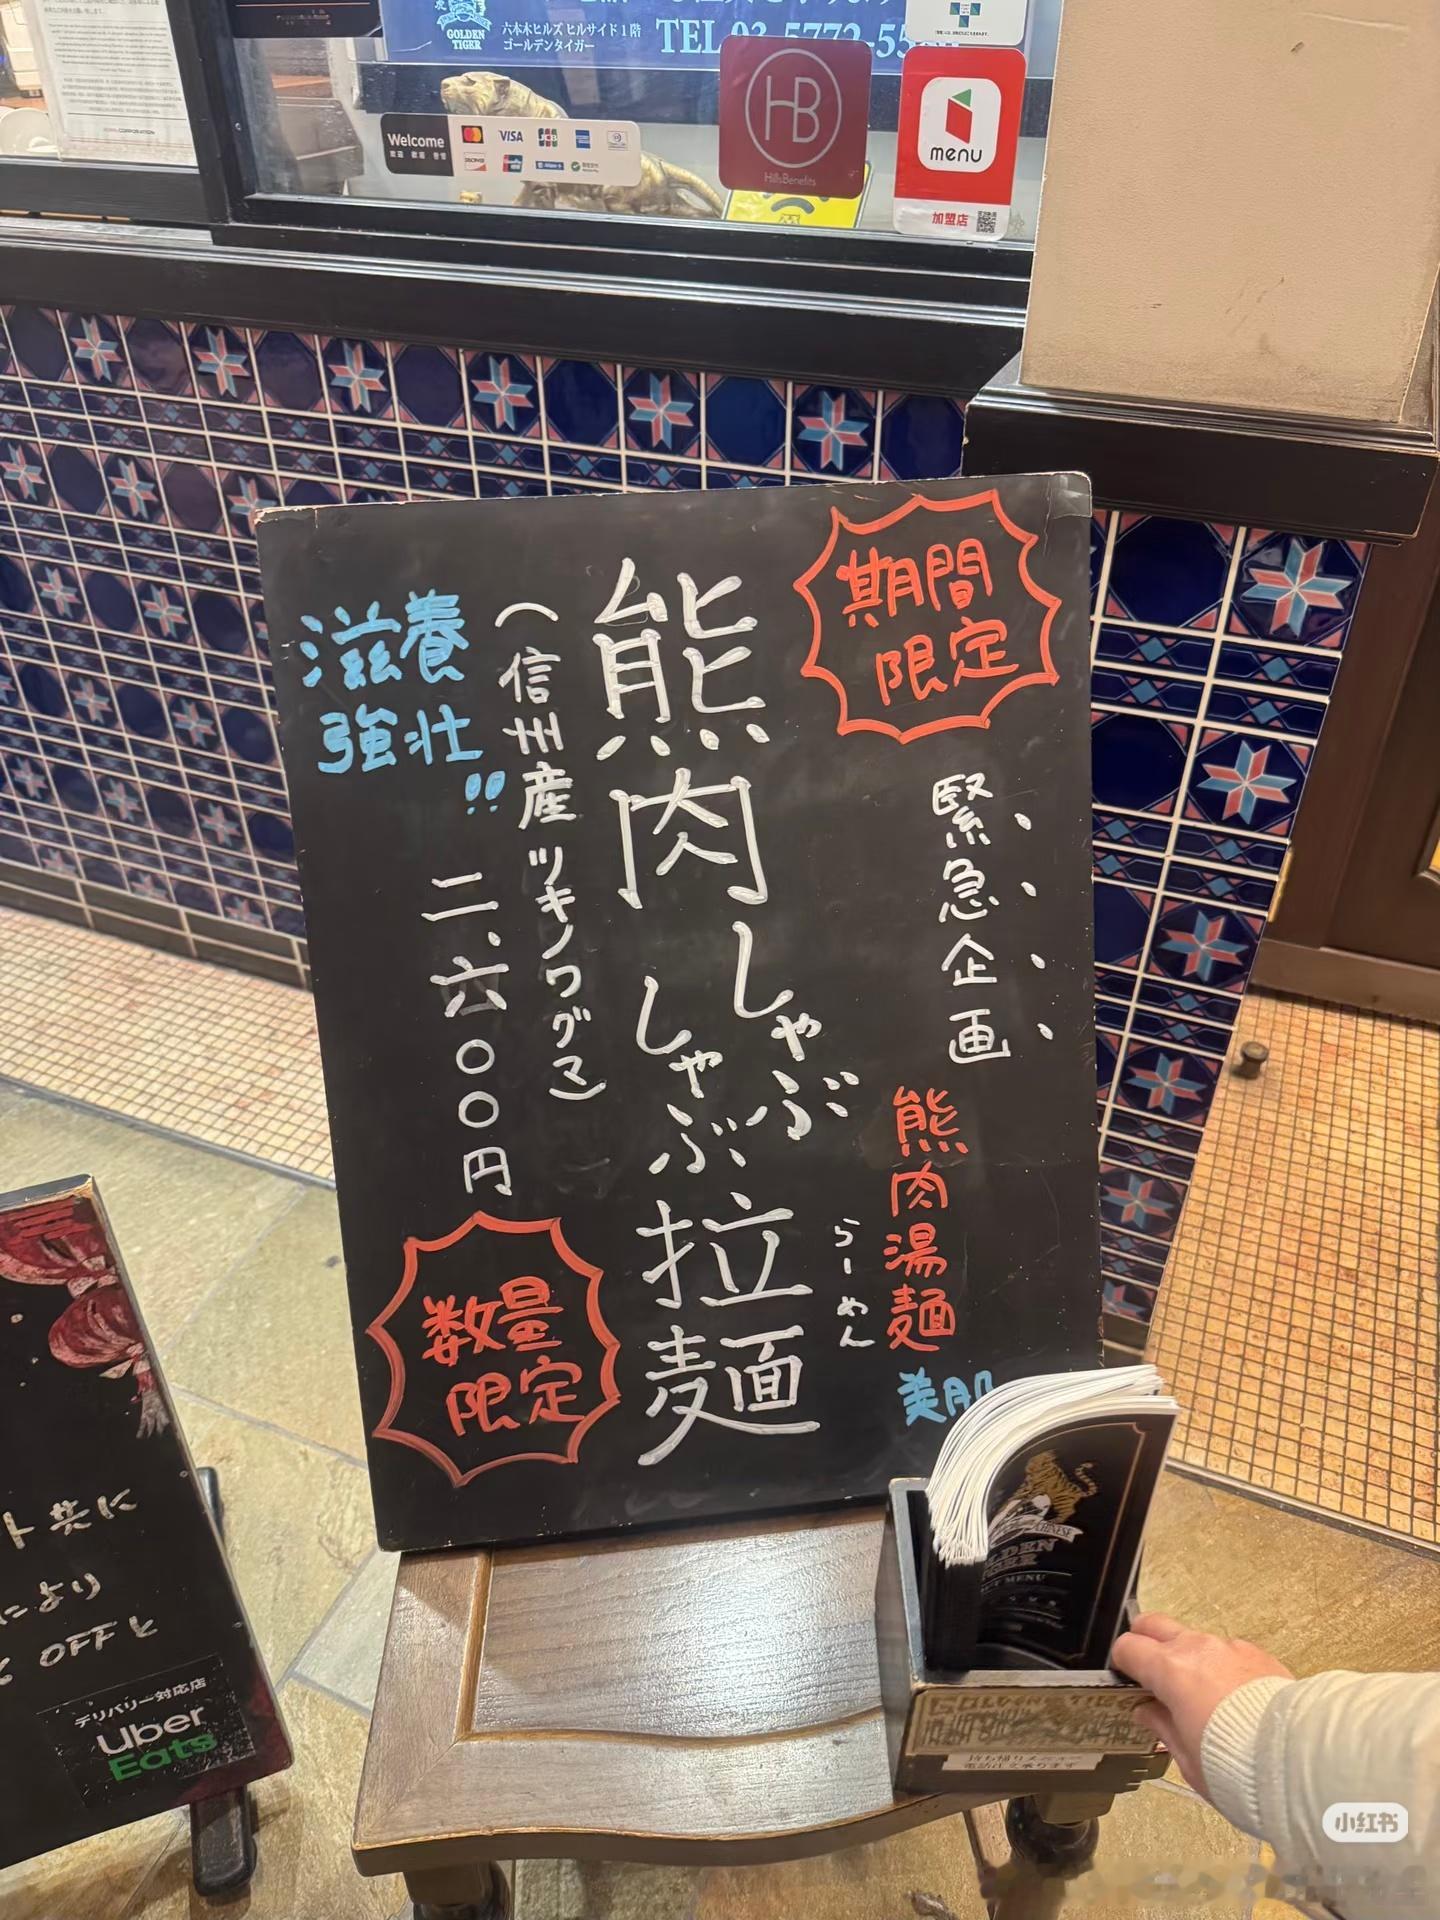 GOLDEN
TIGER
六本木ヒルズ ヒルサイド1階
ゴールデンタイガー
TEL 03-5772-55
Welcome
VISA
JCB
DISCOVER
HB
HillsBenefits
menu
加盟店
期間
限定
緊急企画
熊肉湯麺
らーめん
美肌
熊肉しゃぶしゃぶ拉麺
(信州産ツキノワグマ)
二、六〇〇円
滋養
強壮!!
数量
限定
ト共に
により
OFFと
デリバリー対応店
Uber
Eats
CHINESE
GOLDEN
TIGER
MENU
持ち帰りメニュー
電話注文承ります
小红书